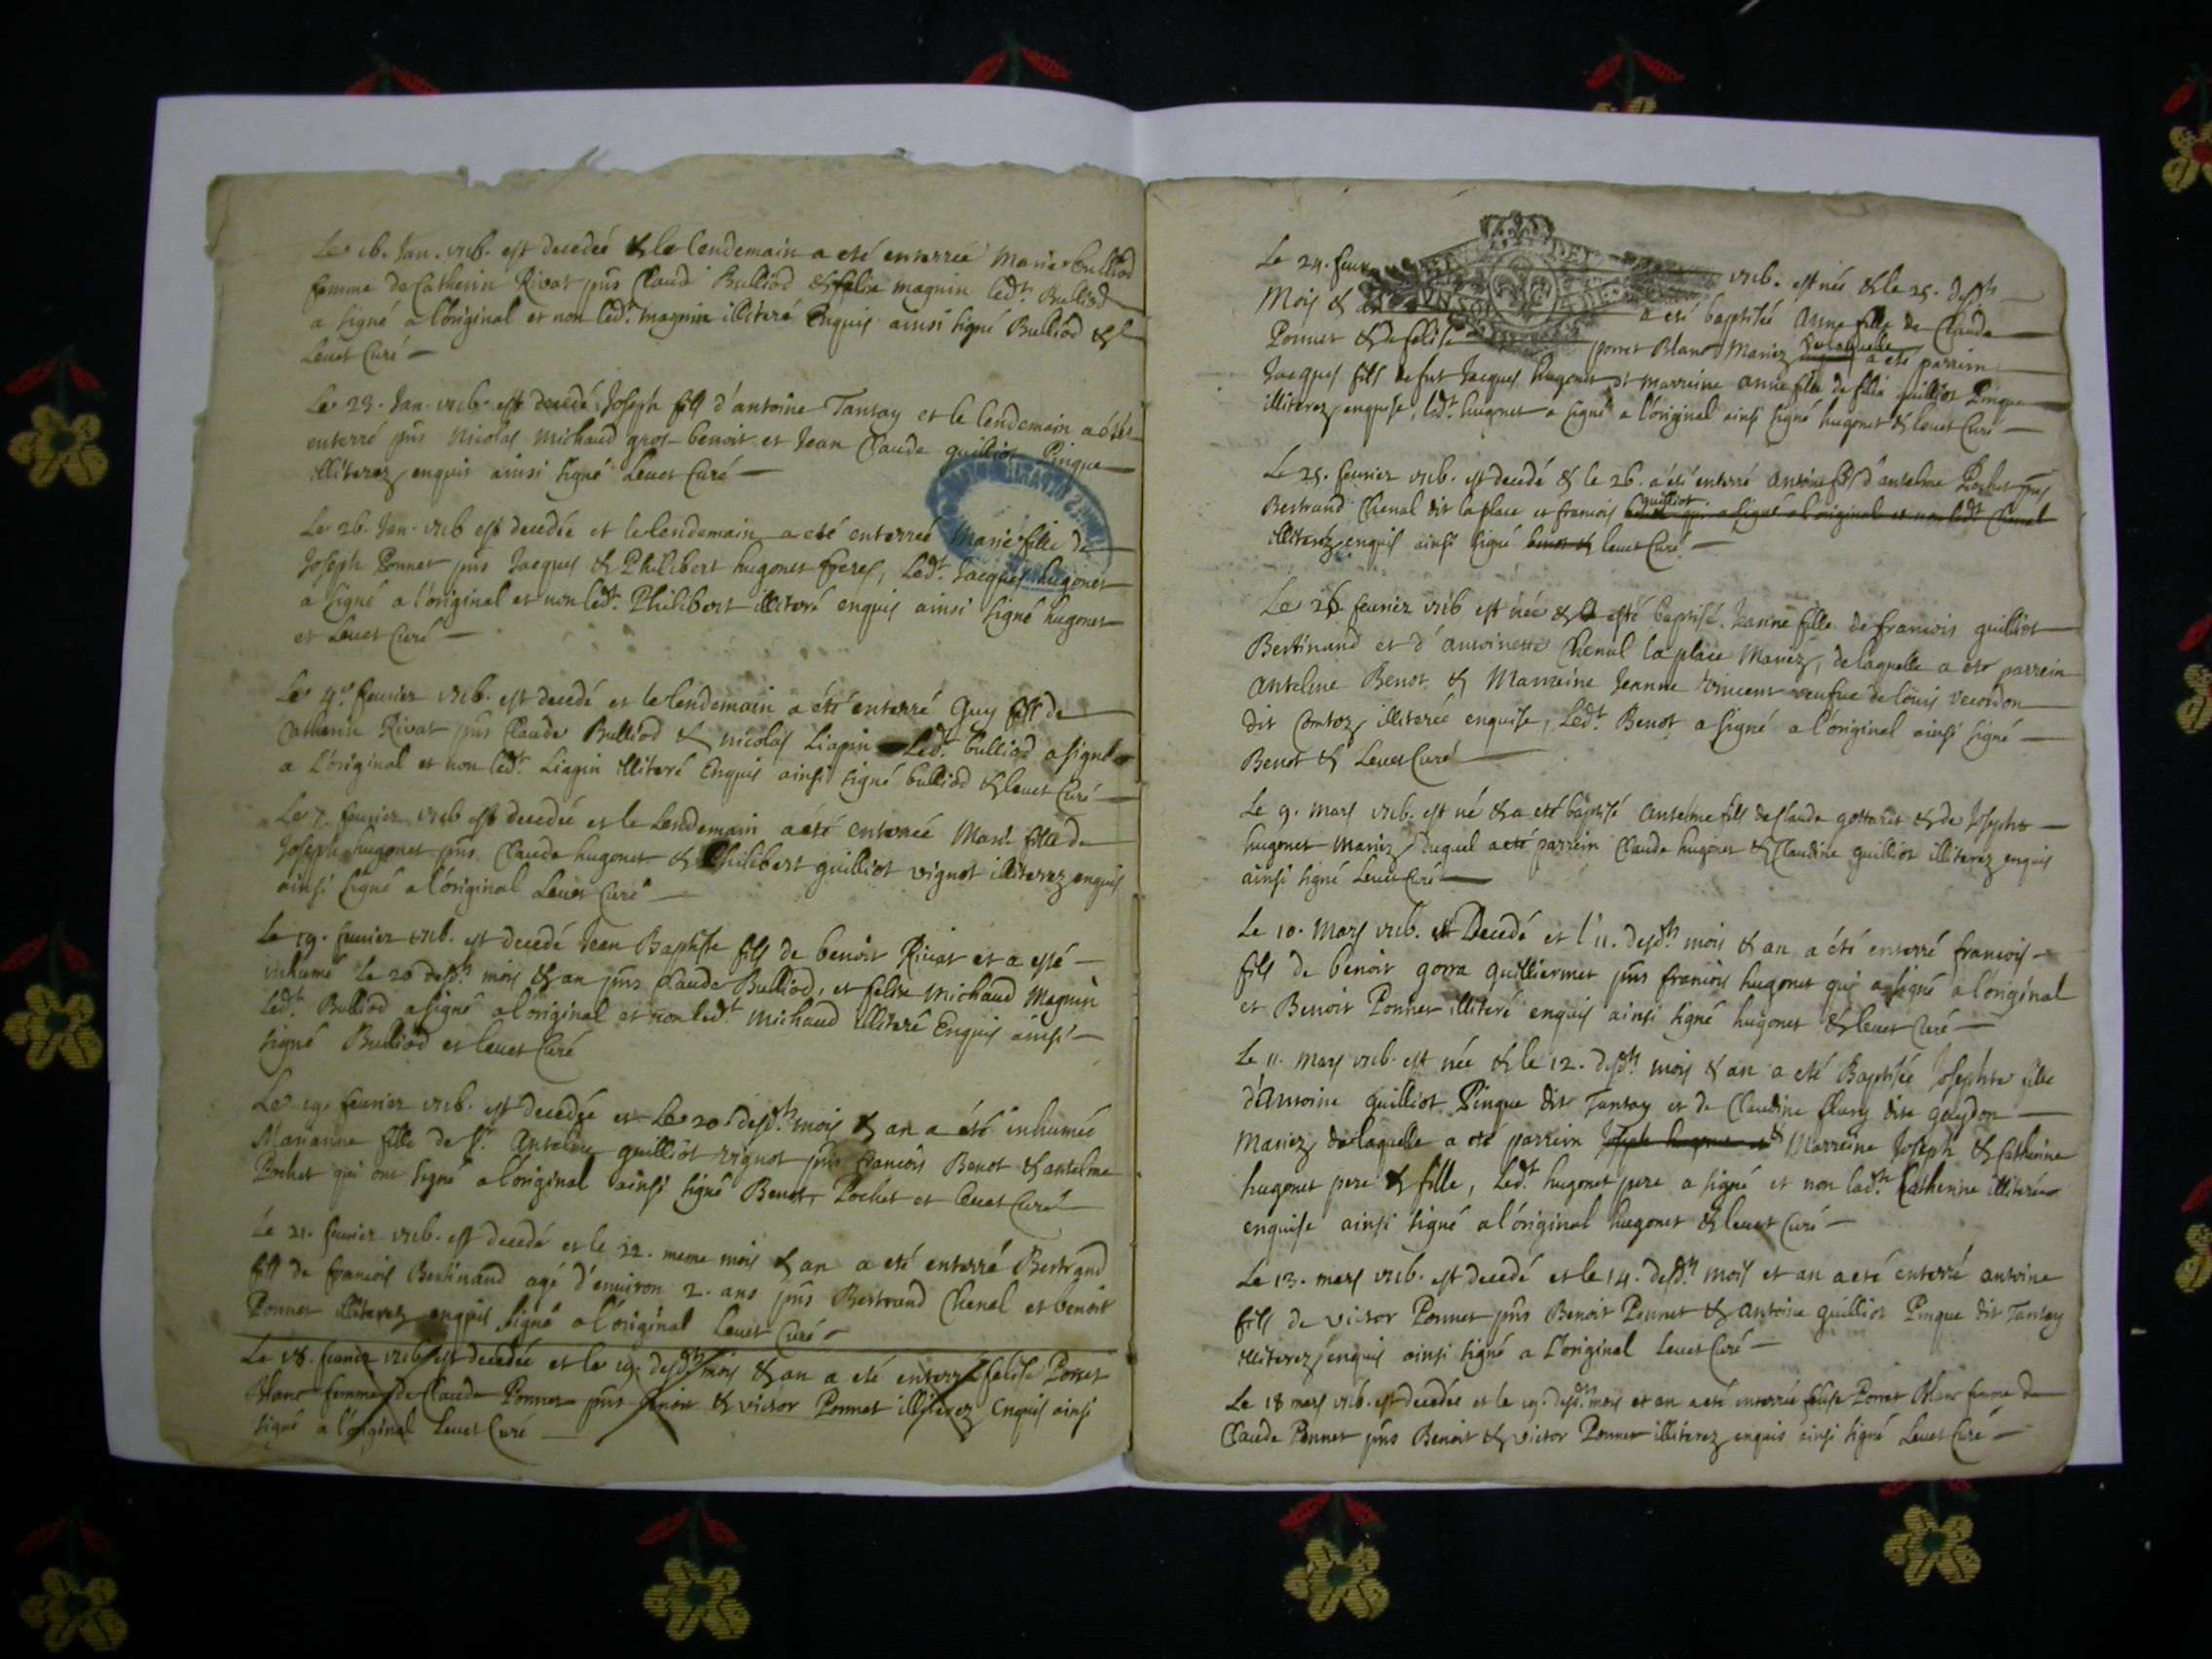 Le 16. Jan. 1716. est decedeé & le lendemain a eté enterreé Marie bulliod
femme de Catherin Rivat pñs Claud Bulliod & felix magnin led.t Bulliod
a signé a l'original et non led.t magnin illiteré Enquis ainsi signé Bulliod &
Levet Curé
Le 23. Jan. 1716. est decedé Joseph fils d'antoine Tantay et le lendemain a été
enterré pñs Nicolas michaud gros-benoit et Jean Claude guilliot Pingue
illiterez enquis ainsi signé Levet Curé
Le 26. Jan. 1716 est decedée et le lendemain a eté enterreé Marie fille de
Joseph Ponnet pñs Jacques & Philibert hugonet freres, Led.t Jacques hugonet
a signé a l'original et non led.t Philibert illiteré enquis ainsi signé hugonet
et Levet Curé
Le 4.e fevrier 1716. est decedé et le lendemain a été enterré Guy fils de
Catherin Rivat pñs Claude Bulliod & nicolas Liagin Led.t bulliod a signé
a L'original et non led.t Liagin illiteré Enquis ainsi signé bulliod & levet Curé
Le 7. fevrier 1716 est decedeé et le Lendemain a eté enterreé Marie fille de
Joseph hugonet pñs Claude hugonet & Philibert guilliot vignot illiterez enquis
ainsi signé a l'original Levet Curé
Le 19. fevrier 1716. est decedé Jean Baptiste fils de benoit Rivat et a esté
inhumé le 20 desd.ts mois & an pñs Claude Bulliod, et felix Michaud Magnin
led.t Bulliod a signé a l'original et non led.t Michaud illiteré Enquis ainsi
signé Bulliod et levet Curé
Le 19. fevrier 1716. est decedée et Le 20 desd.ts mois & an a été inhumée
Marianne fille de S.r Antelme guilliot vignot pñs francois Benot & antelme
Pochet qui ont signé a l'original ainsi signé Benot, Pochet et Levet Curé
Le 21. fevrier 1716. est decedé et le 22. meme mois & an a eté enterré Bertrand
fils de francois Bertinand agé d'environ 2. ans pñs Bertrand Chenal et benoit
Ponnet illiterez enquis signé a l'original Levet Curé
Le 18. fevrier 1716 est decedée et le 19. desd.ts mois & an a eté enterré felise Porret
blanc femme de Claude Ponnet pñs benoit & victor Ponnet illiterez Enquis ainsi
signé a l'original Levet Curé
Le 24. fevr 1716. est née & le 25. desd.ts
Mois & an a eté baptiseé Anne fille de Claude
Ponnet & de felise porret Blanc Mariez de laquelle a eté parrein
Jacques fils de fut Jacques hugonet et marreine anne fille de felix guilliot Pingue
illiterez enquise, led.t hugonet a signé a l'original ainsi signé hugonet & levet Curé
Le 25. fevrier 1716. est decedé & le 26. a été enterré antoine fils d'antelme Pochet pñs
Bertrand Chenal dit la place et francois guilliot qui a signé a l'original et non led.t Chenal
illiterez enquis ainsi signé benot & levet Curé
Le 26 fevrier 1716 est née & a esté baptisé Jeanne fille de francois guilliot
Bertinand et d'antoinette Chenal la place Mariez, de laquelle a eté parrein
Antelme Benot & Marreine Jeanne Vincent veufve de loüis Vecordon
dit Comtoz illiterée enquise, Led.t Benot a signé a l'original ainsi signé
Benot & Levet Curé
Le 9. mars 1716. est né & a eté baptisé Antelme fils de Claude gottaret & de Josephte
hugonet Mariez duquel a eté parrein Claude hugonet & Claudine guilliot illiterez enquis
ainsi signé Levet Curé
Le 10. Mars 1716. est Decedé et l'11. desd.ts mois & an a été enterré francois
fils de benoit gorra guilliermet pñs francois hugonet qui a signé a l'original
et Benoit Ponnet illiteré enquis ainsi signé hugonet & levet Curé
Le 11. Mars 1716. est née & le 12. desd.ts mois & an a eté Baptisée Josephte fille
d'Antoine guilliot Pingue dit Tantay et de Claudine fleury dite geaydon
Mariez de laquelle a eté parrein Joseph hugonet et & Marreine Joseph & Catherine
hugonet pere & fille, Led.t hugonet pere a signé et non lad.te Catherine illiterée
enquise ainsi signé a l'original hugonet & levet Curé
Le 13. mars 1716. est decedé et le 14. desd.ts mois et an a eté enterré antoine
fils de victor Ponnet pñs Benoit Ponnet & antoine guilliot Pingue dit Tantay
illiterez enquis ainsi signé a L'original Levet Curé
Le 18 mars 1716. est decedée et le 19. desd.ts mois et an a eté enterrée felise Porret Blanc femme de
Claude Ponnet pñs Benoit & victor Ponnet illiterez enquis ainsi signé Levet Curé